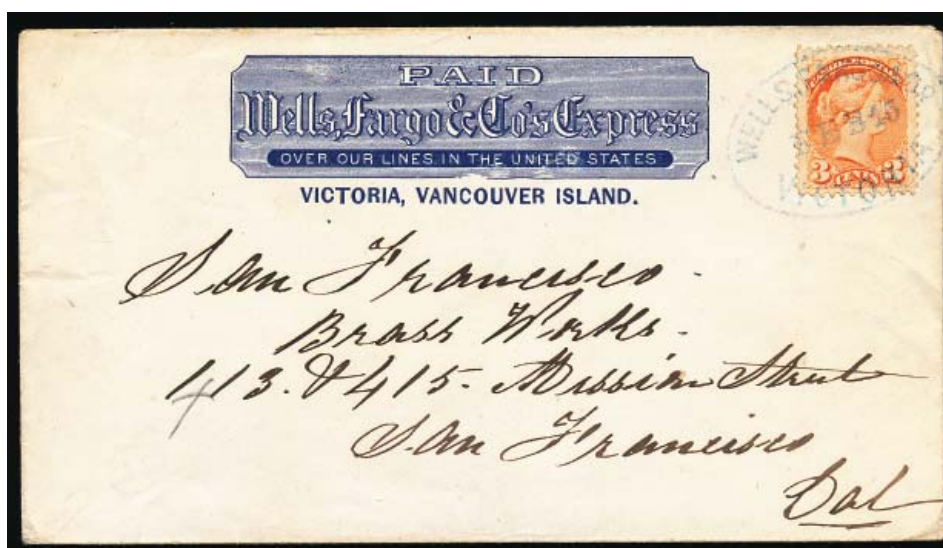 PAID
Wells, Fargo & Co's Express
OVER OUR LINES IN THE UNITED STATES
VICTORIA, VANCOUVER ISLAND.
WELLS
FEB 15
VICTORIA
3 CENTS 3
San Francisco -
Brass Works -
113. & 415. Mission Street
San Francisco
Cal